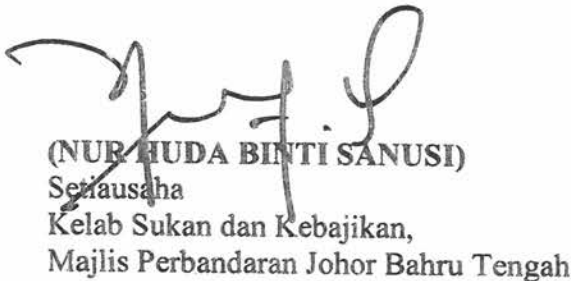 (NUR HUDA BINTI SANUSI)
Setiausaha
Kelab Sukan dan Kebajikan,
Majlis Perbandaran Johor Bahru Tengah